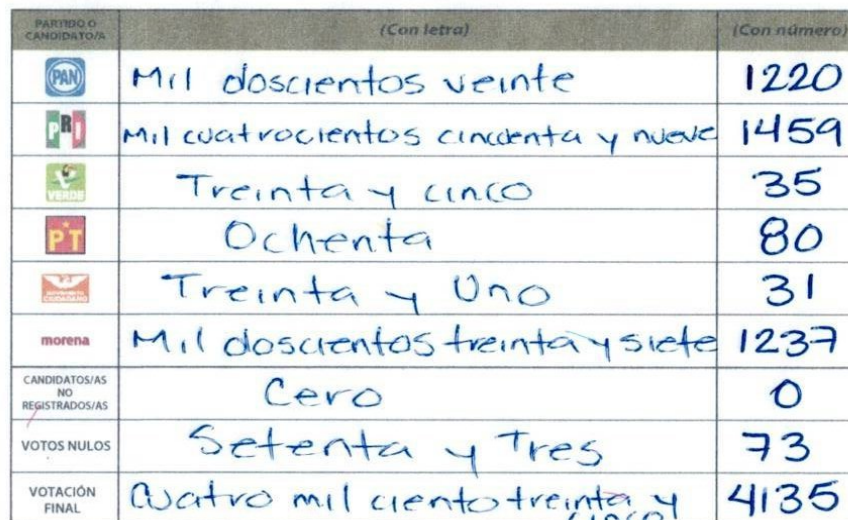 PARTIDO O CANDIDATO/A (Con letra) (Con número)
PAN Mil doscientos veinte 1220
PRI Mil cuatrocientos cincuenta y nueve 1459
VERDE Treinta y cinco 35
PT Ochenta 80
MOVIMIENTO CIUDADANO Treinta y Uno 31
morena Mil doscientos treinta y siete 1237
CANDIDATOS/AS NO REGISTRADOS/AS Cero 0
VOTOS NULOS Setenta y Tres 73
VOTACIÓN FINAL Cuatro mil ciento treinta y cinco 4135